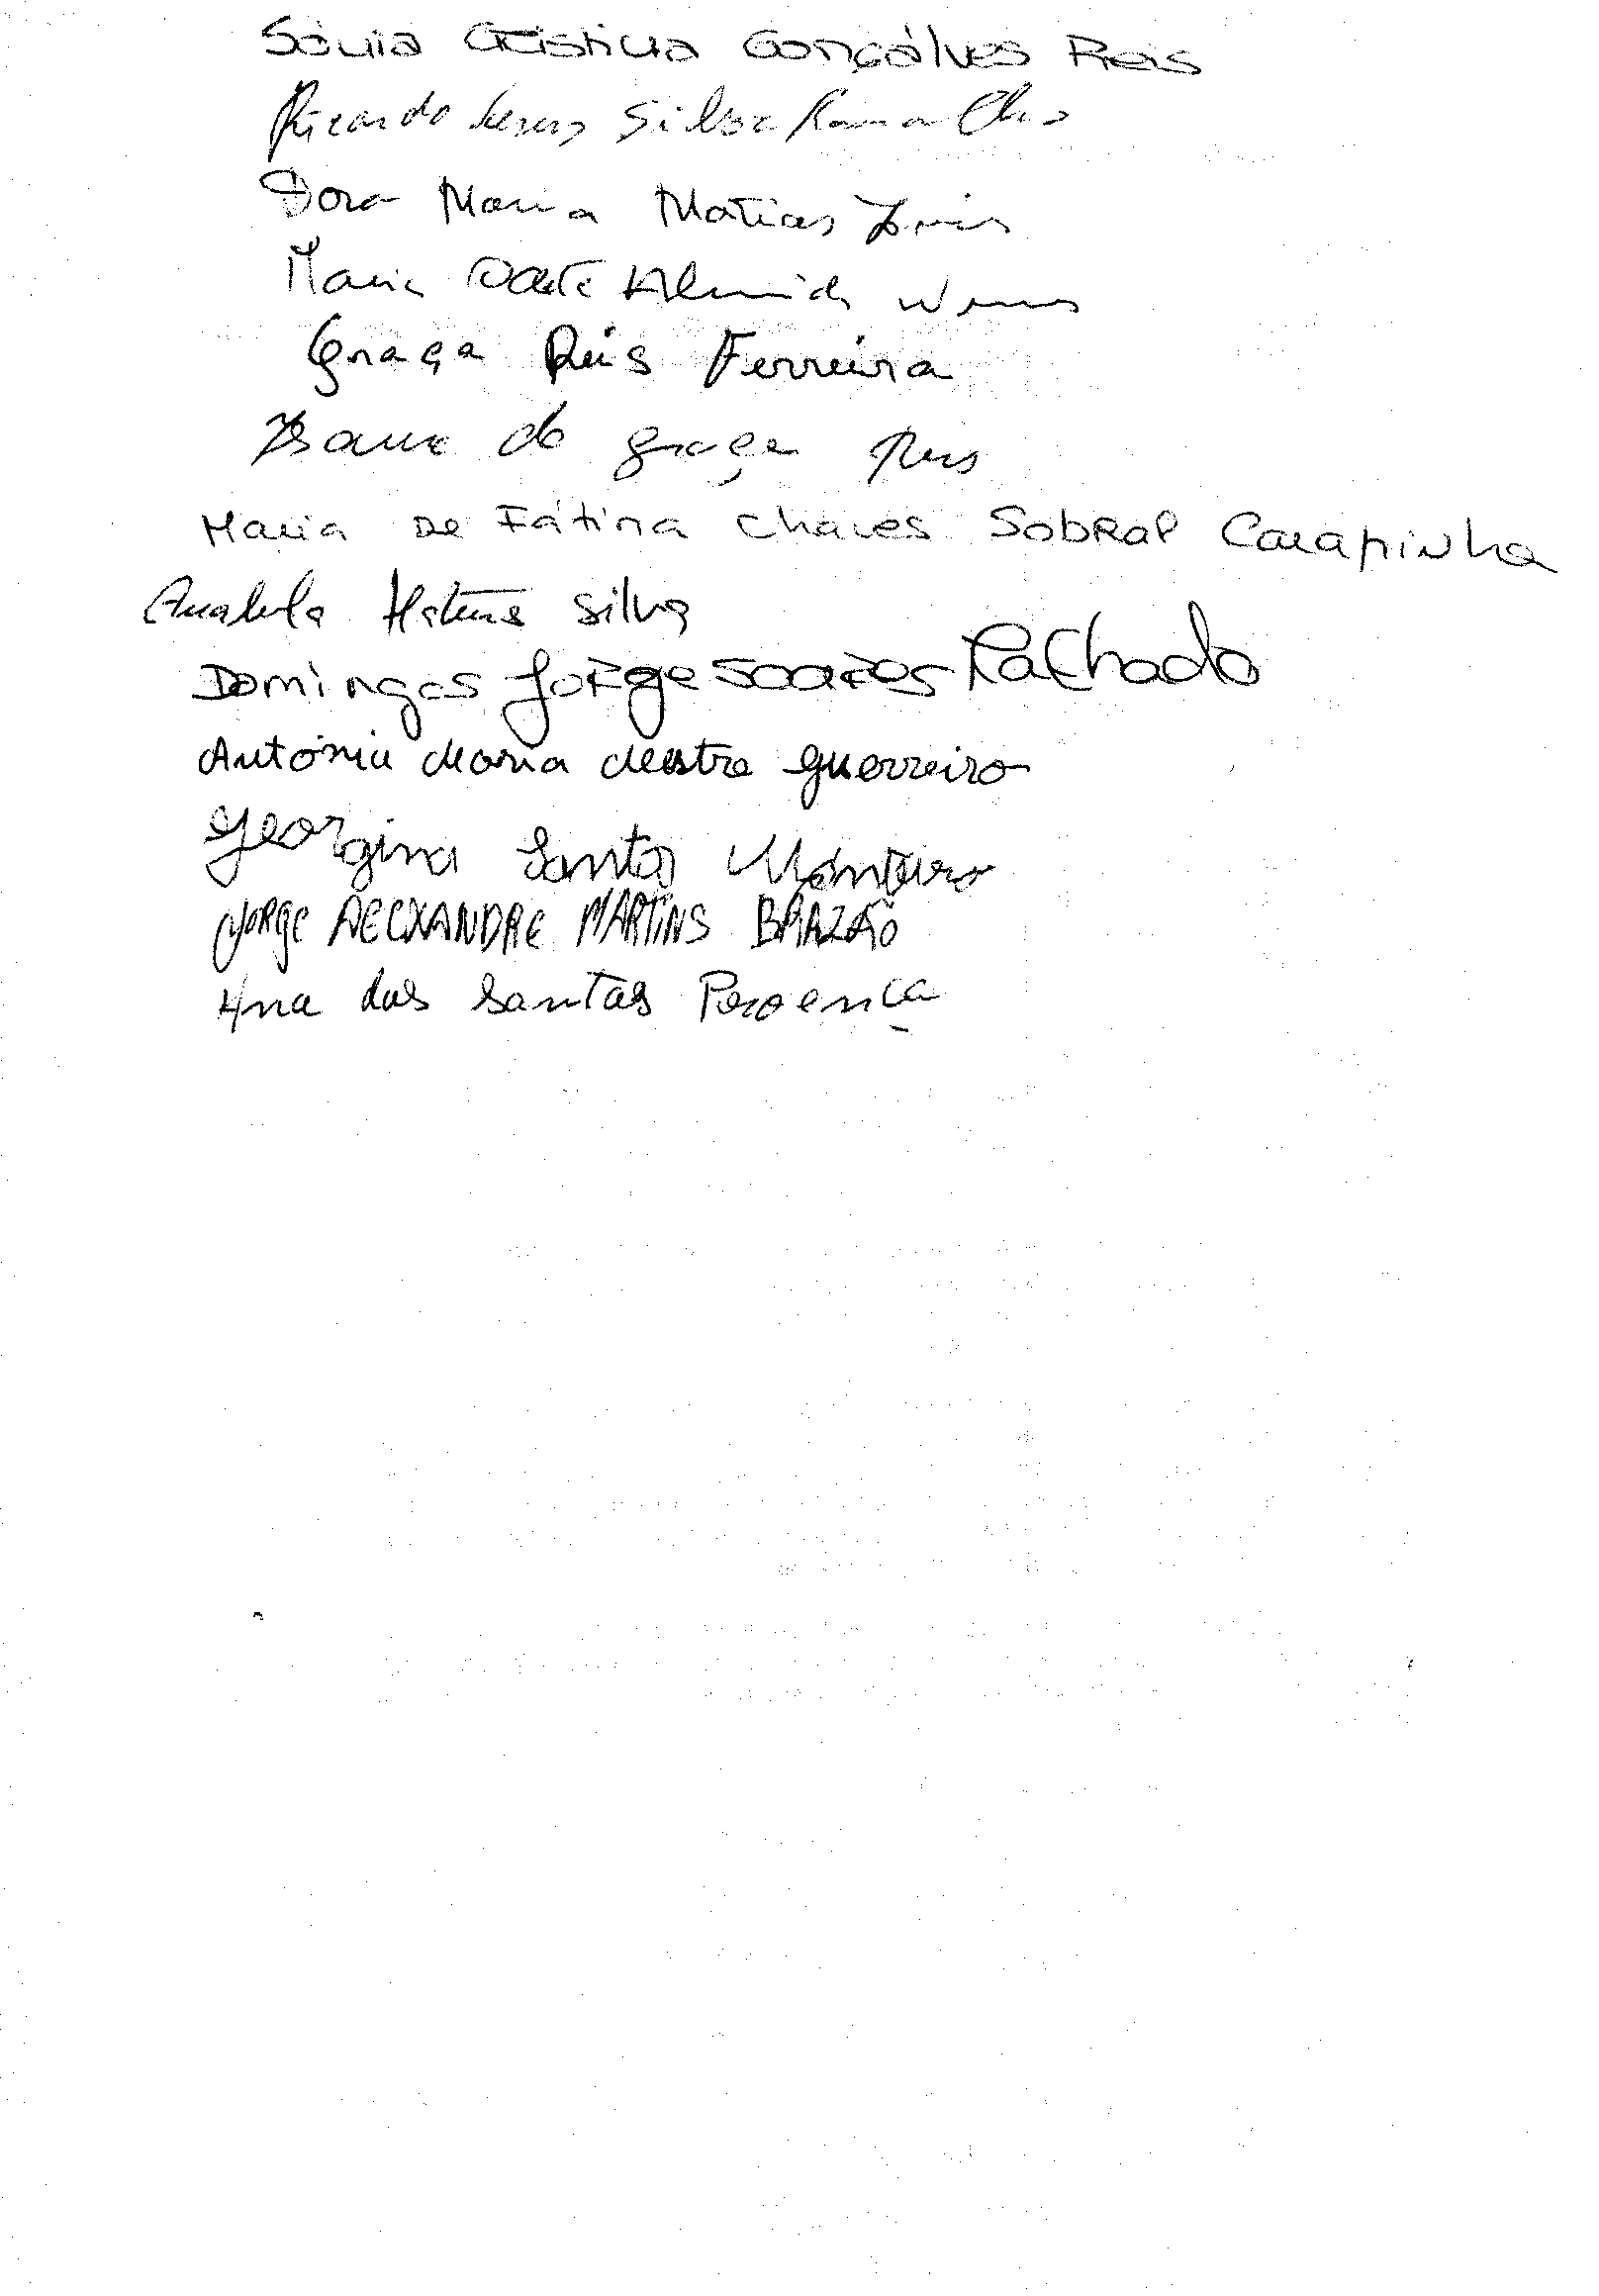 Sónia Cristina Gonçálves Reis
Ricardo Jesus Silva Ramalho
Dora Maria Matias
Maria Odete Almeida
Graça Reis Ferreira
da Graça Reis
Maria de Fátima Chaves Sobral Carapinha
Anabela Silva
Domingos Jorge Soares Machado
Antónia Maria Mestre Guerreiro
Georgina Santos Monteiro
Jorge ALEXANDRE MARTINS BRAZÃO
Ana dos Santos Proença